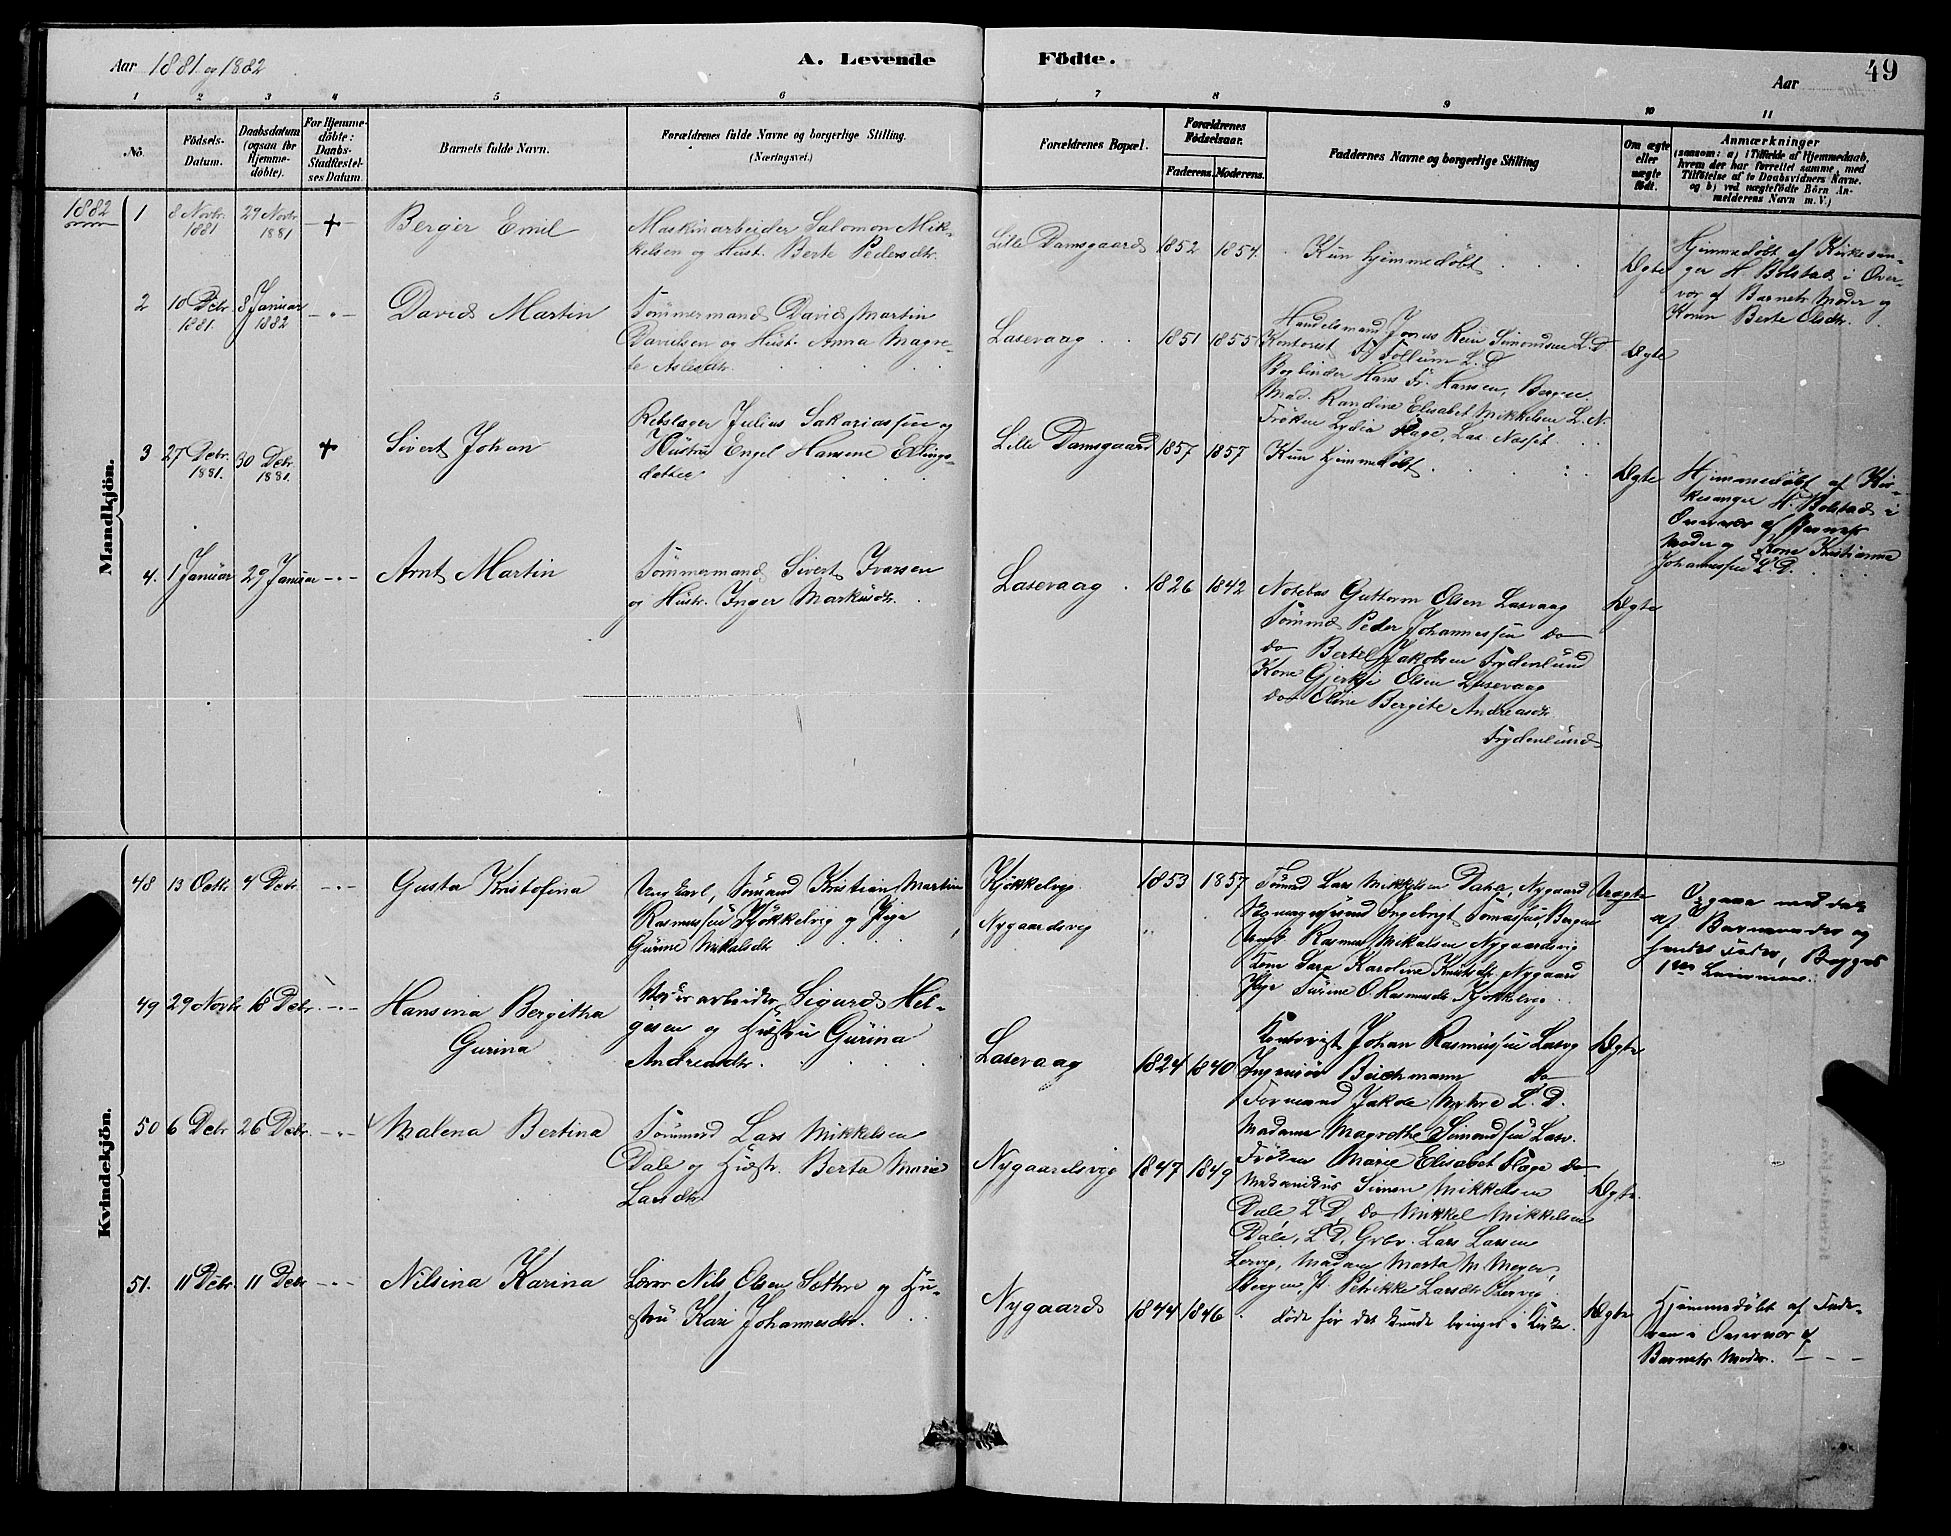 Aar 1881 og 1882
A. Levende Födte.
Aar
49
1 2 3 4 5 6 7 8 9 10 11
No.
Födsels-Datum.
Daabsdatum (ogsaa for Hjemme-döbte).
For Hjemme-döbte: Daabs-Stadfæstel-ses Datum.
Barnets fulde Navn.
Forældrenes fulde Navne og borgerlige Stilling. (Næringsvei.)
Forældrenes Bopæl.
Forældrenes Födselsaar.
Faderens. Moderens.
Faddernes Navne og borgerlige Stilling
Om ægte eller uægte födt.
Anmærkninger
(saasom: a) i Tilfælde af Hjemmedaab, hvem der har forrettet samme, med Tilföielse af to Daabsvidners Navne. og b) ved uægtefödte Börn An-melderens Navn m. V.)
Mandkjön.
1882
1
8 Novbr. 1881
29 Novbr 1881
+
Berger Emil
Maskinarbeider Salomon Mik-
kelsen og Hust. Berte Pedersdtr.
Lille Damsgaard
1852
1854.
Kun hjemmedöbt
Ægte
Hjemmedöbt af Kirkesan-
ger H Bolstad i Over-
vær af Barnets Moder og
Konen Berte Olsdtr.
2
10 Debr. 1881.
8 Januar 1882
- " -
David Martin
Tömmermand David Martin
Davidsen og Hust. Anna Magre-
te Aslesdtr.
Laxevaag
1851
1855
Handelsmand Jonas Rein Simondsen L. D.
Kontorist Fr Follum L. D
Bogbinder Hans Fr. Hansen, Bergen.
Mad. Randine Elisabet Mikkelsen L. N.
Fröken Lydia Flage, Lax. Næsset.
Ægte
3
27 Debr. 1881.
30 Debr. 1881.
+
Sivert Johan
Rebslager Julius Sakariassen og
Hustru Engel Hansine Erlings-
datter
Lille Damsgaard
1857
1857
Kun hjemmedöbt
Ægte
Hjemmedöbt af Kir-
kesanger H. Bolstad i
Overvær af Barnets
Moder og Kone Kristianna
Johannessen L. D.
4.
1 Januar
29 Januar
- " -
Arnt Martin
Tömmermand Sivert Ivarsen
og Hustr. Inger Markusdtr.
Laxevaag
1826
1842
Notebas Guttorm Olsen Laxvaag
Tömmd Peder Johannessen do
do Bertel Jakobsen Frydenlund
Kone Gjertje Olsen Laxevaag
do Oline Bergite Andreasdtr
Frydenlund
Ægte
Kvindekjön.
48
13 Octbr
4 Debr.
- " -
Gusta Kristofina
Ung karl, Sömand Kristian Martin
Rasmussen Kjökkelvig og Pige
Gurine Mikalsdtr
Kjökkelvig
Nygaardsvig
1853
1857
Tömmd Lars Mikkelsen Dahle, Nygaard
Ingebrigt Tomassen, Bergen
Ungk. Rasmus Mikalsen Nygaardsvig
Kone Sara Karoline Knutsdtr Nygaard
Pige Turine O. Rasmusdtr Kjökkelvig
Uægte
Opgave meddelt
af Barnemoder og
hendes Fader, Begges
1ste Leiermaal.
49
29 Novbr
18 Debr.
- " -
Hansina Bergitha
Gurina
Sigurd Hel-
gesen og Hustru Gurina
Andreasdtr.
Laxevaag
1824
1840
Kontorist Johan Rasmussen Laxvg
Ingeniör Beichmann do
Formand Jakob Myhre L. D.
Madame Magrethe Simondsen Laxv.
Fröken Marie Elisabet Flage do
Ægte
50
6 Debr
26 Debr.
- " -
Malena Bertina
Tömmerd Lars Mikkelsen
Dale og Hustr. Berta Marie
Larsdtr
Nygaardsvig
1847
1849
Mekanikus Simon Mikkelsen
Dale L D, do Mikkel Mikkelsen
Dale, L D, Grbr. Lars Larsen
Lervig, Madam Marta M. Meyer,
Bergen, P. Petrikke Larsdtr Lervig
Ægte.
51.
11 Debr.
11 Debr
- " -
Nilsina Karina
Lærer Nils Olsen Sæthre og Hu-
stru Kari Johannesdtr.
Nygaard
1844
1846
döde för det kunde bringes i Kirke.
Ægte
Hjemmedöbt af Fade-
ren i Overvær af
Barnets Moder.